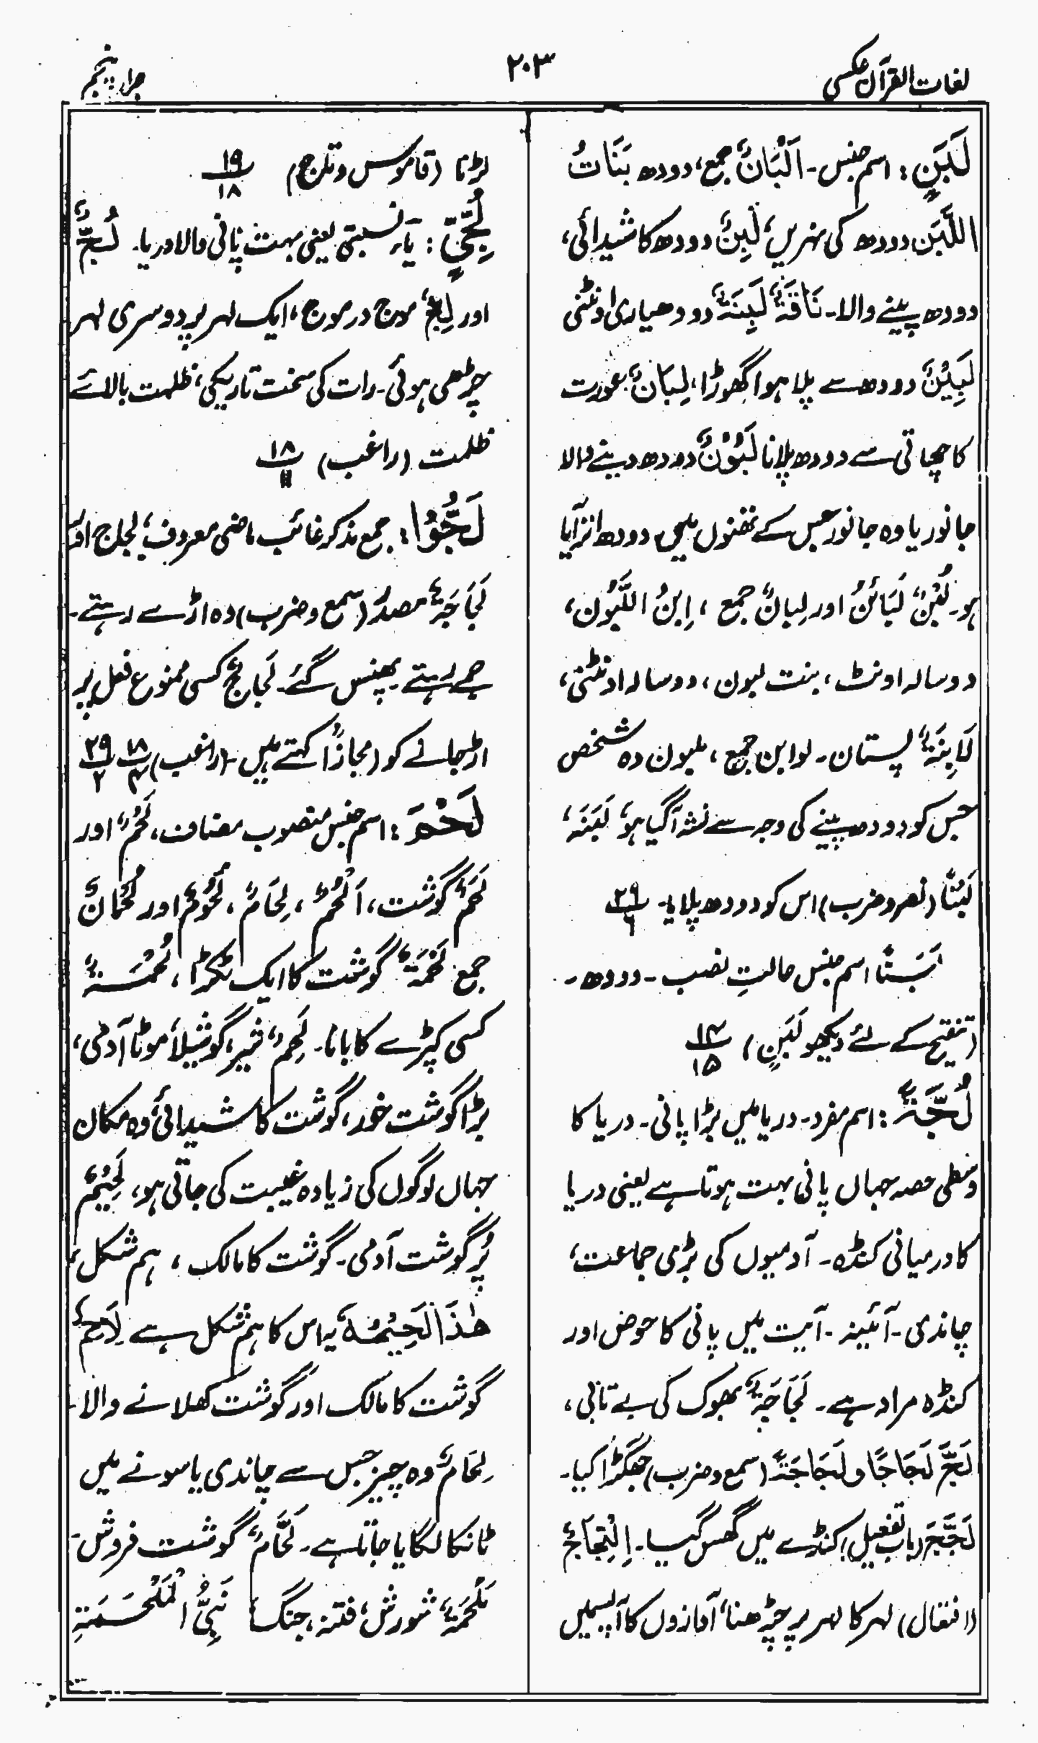 لغات القرآن عکسی
۲۰۳
جلد پنجم
لَبَنٍ: اسم جنس۔ اَلْبَانٌ جمع، دودھ بَنَاتُ
اللَّبَن دودھ کی نہریں، لَبِنٌ دودھ کا شیدائی،
دودھ پینے والا۔ نَاقَةٌ لَبِنَةٌ دودھیاری اونٹنی
لَبِیْنٌ دودھ سے پلا ہوا گھوڑا، لِبَانٌ عورت
کا چھاتی سے دودھ پلانا لَبُوْنٌ دودھ دینے والا
جانور یا وہ جانور جس کے تھنوں میں دودھ اتر آیا
ہو۔ لُبْنٌ لَبَائِنُ اور لِبانٌ جمع ، اِبنُ اللَّبُوْن،
دو سالہ اونٹ، بنت لبون، دو سالہ اونٹنی،
لَابِنَةٌ پستان۔ لوابن جمع، ملبون وہ شخص
جس کو دودھ پینے کی وجہ سے نشہ آگیا ہو، لَبَنَہٗ
لَبْنًا (نصر و ضرب) اس کو دودھ پلایا۔ ۲۶/۶
لَبَنًا اسم جنس حالتِ نصب۔ دودھ۔
(تنقیح کے لئے دیکھو لَبَنٍ) ۱۴/۱۵
لُجَّةً: اسم مفرد۔ دریا میں بڑا پانی۔ دریا کا
وسطی حصہ جہاں پانی بہت ہوتا ہے یعنی دریا
کا درمیانی کنڈہ۔ آدمیوں کی بڑی جماعت،
چاندی۔ آئینہ۔ آیت میں پانی کا حوض اور
کنڈہ مراد ہے۔ لَجَاجَةٌ بھوک کی بے تابی،
لَجَّ لَجَاجًا و لَجَاجَةً (سمع و ضرب) جھگڑا کیا۔
لَجَّجَ (باب تفعیل) کنڈے میں گھس گیا۔ اِلْتِجَاجٌ
(افتعال) لہر کا لہر پر چڑھنا، آوازوں کا آپس میں
لڑنا (قاموس و تاج) ۱۹/۱۸
لُجِّیٍّ: یاء نسبتی یعنی بہت پانی والا دریا۔ لُجٌّ
اور لُجٌّ موج در موج، ایک لہر پر دوسری لہر
چڑھی ہوئی۔ رات کی سخت تاریکی، ظلمت بالائے
ظلمت (راغب) ۱۸/۱۱
لَجُّوْا: جمع مذکر غائب ماضی معروف، لجاج اور
لَجَاجَةٌ مصدر (سمع و ضرب) وہ اڑے رہتے۔
جمے رہتے پھنس گئے۔ لَجَاجٌ کسی ممنوع فعل پر
اڑ جانے کو (مجازاً) کہتے ہیں۔ (راغب) ۱۸/۴ ۲۹/۲
لَحْمَ: اسم جنس منصوب مضاف، لَحْمٌ اور
لَحَمٌ گوشت، اَلْحُمٌ ، لِحَامٌ ، لُحُوْمٌ اور لُحْمَانٌ
جمع لَحْمَةٌ گوشت کا ایک ٹکڑا، لُحْمَةٌ
کسی کپڑے کا بانا۔ لَحِمٌ، شیر، گوشیلا، موٹا آدمی،
بڑا گوشت خور، گوشت کا شیدائی، وہ مکان
جہاں لوگوں کی زیادہ غیبت کی جاتی ہو، لَحِیْمٌ
پُر گوشت آدمی۔ گوشت کا مالک، ہم شکل،
هٰذَا لَحِیْمُہٗ یہ اس کا ہم شکل ہے لَاحِمٌ
گوشت کا مالک اور گوشت کھلانے والا۔
لِحَامٌ وہ چیز جس سے چاندی یا سونے میں
ٹانکا لگایا جاتا ہے۔ لَحَّامٌ گوشت فروش۔
مَلْحَمَةٌ، شورش، فتنہ، جنگ نَبِیُّ الْمَلْحَمَةِ